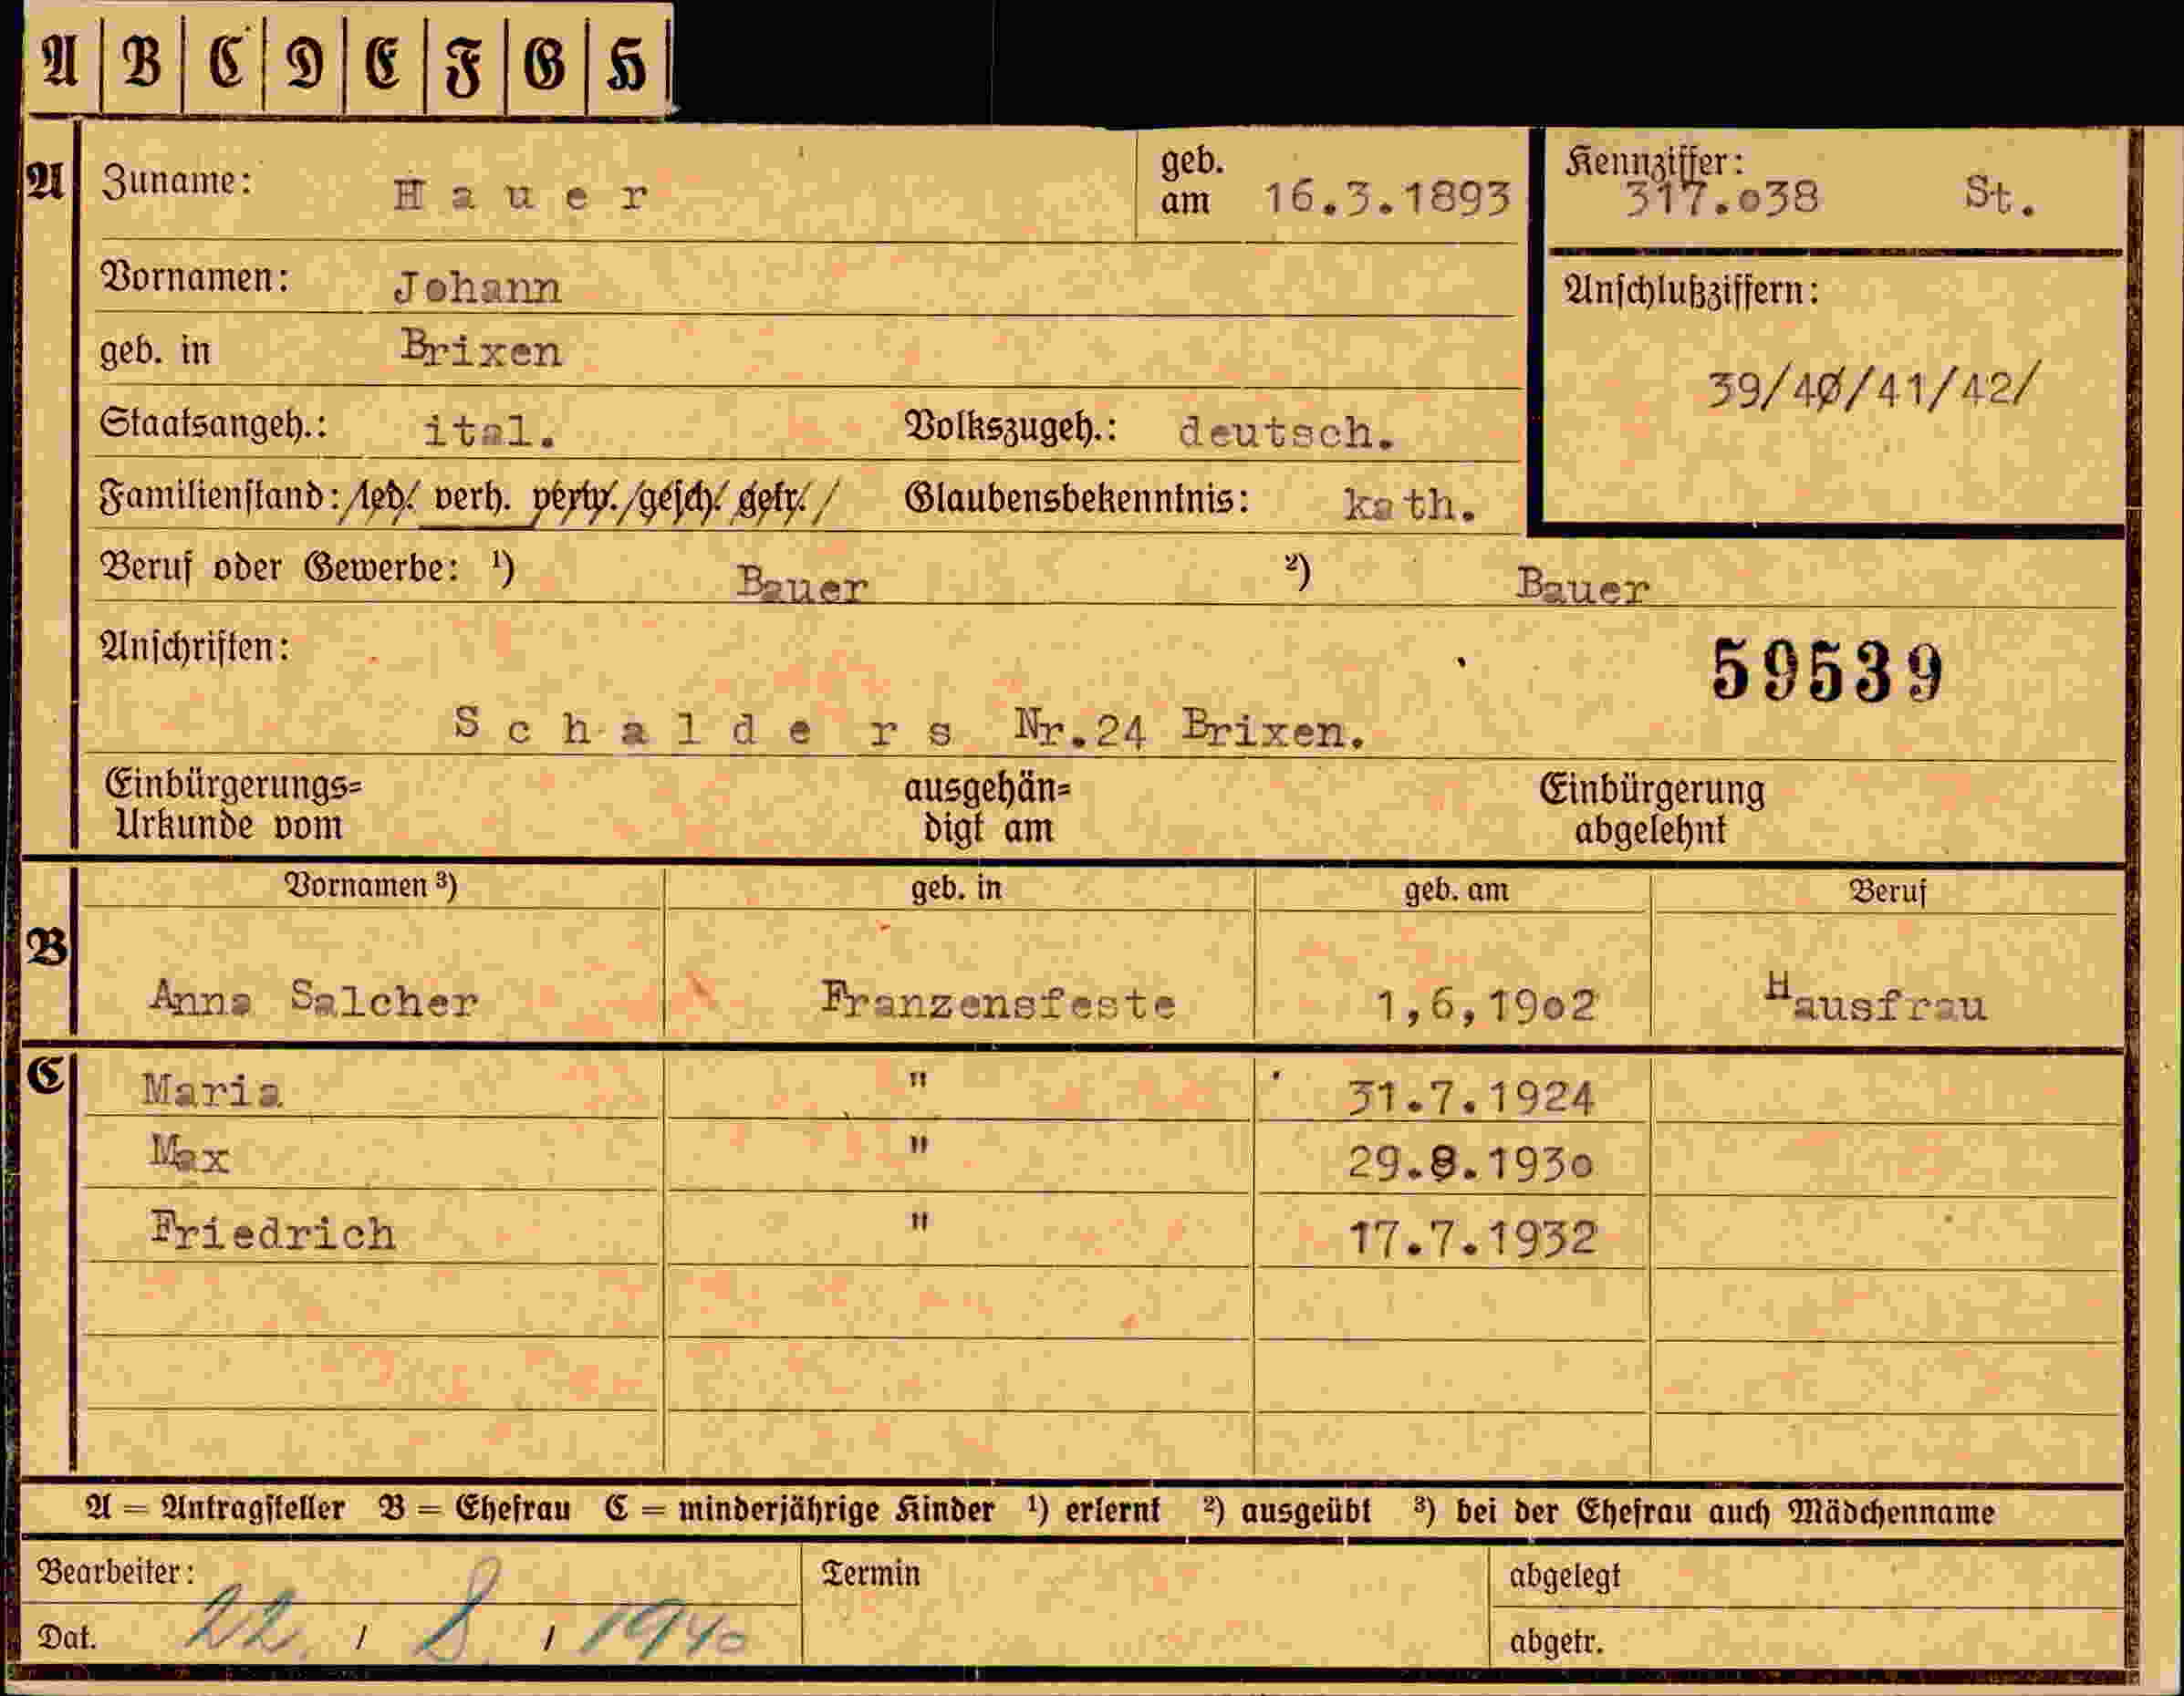 A B C D E F G H
A Zuname: Hauer geb. am 16.3.1893 Kennziffer: 317.o38 St.
Vornamen: Johann Anschlußziffern:
geb. in Brixen 39/40/41/42/
Staatsangeh.: ital. Volkszugeh.: deutsch.
Familienstand: /led./ verh. verw./gesch./ getr./ Glaubensbekenntnis: kath.
Beruf oder Gewerbe: ¹) Bauer ²) Bauer
Anschriften: 59539
Schalders Nr.24 Brixen.
Einbürgerungs= ausgehän= Einbürgerung
Urkunde vom digt am abgelehnt
Vornamen ³) geb. in geb. am Beruf
B Anna Salcher Franzensfeste 1,6,19o2 Hausfrau
C Maria " 31.7.1924
Max " 29.8.193o
Friedrich " 17.7.1932
A = Antragsteller B = Ehefrau C = minderjährige Kinder ¹) erlernt ²) ausgeübt ³) bei der Ehefrau auch Mädchenname
Bearbeiter: Termin abgelegt
Dat. 22. / 8. / 1940 abgetr.